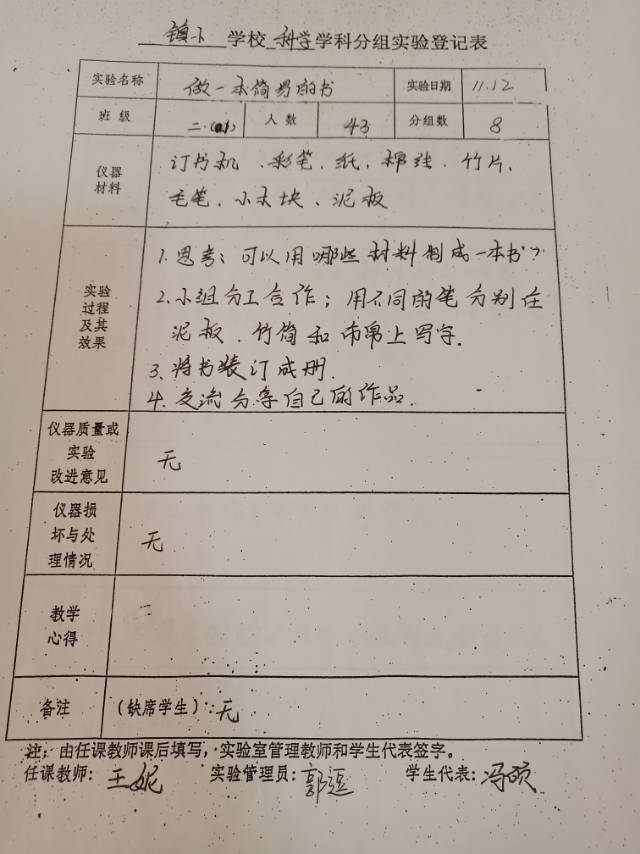 镇下 学校 科学 学科分组实验登记表
实验名称 做一本简易的书 实验日期 11.12
班 级 二.(1) 人 数 43 分组数 8
仪器材料 订书机、彩笔、纸、棉线、竹片、
毛笔、小木块、泥板
实验过程及其效果 1.思考:可以用哪些材料制成一本书?
2.小组分工合作;用不同的笔分别在
泥板、竹简和布帛上写字.
3.将书装订成册.
4.交流分享自己的作品.
仪器质量或实验改进意见 无
仪器损坏与处理情况 无
教学心得
备注 (缺席学生):无
注:由任课教师课后填写,实验室管理教师和学生代表签字。
任课教师:王妮 实验管理员:郭 学生代表:冯硕